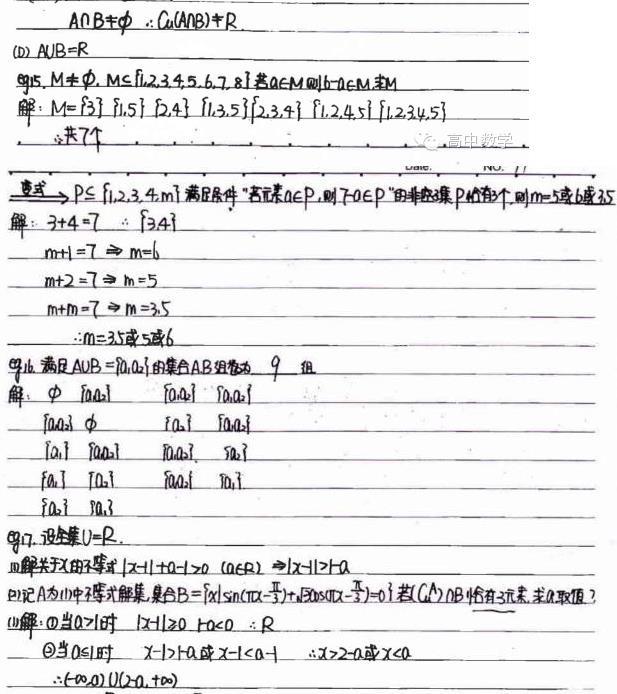 A∩B≠φ ∴Cu(A∩B)≠R
(D) A∪B=R
eg15. M≠φ. M⊆{1,2,3,4,5,6,7,8} 若a∈M则6-a∈M.求M
解: M={3} {1,5} {2,4} {1,3,5} {2,3,4} {1,2,4,5} {1,2,3,4,5}
∴共7个
高中数学
Date. NO.
变式 → P⊆{1,2,3,4,m} 满足条件"若元素a∈P,则7-a∈P"的非空集P恰有3个,则m=5或6或3.5
解: 3+4=7 ∴{3,4}
m+1=7 ⇒ m=6
m+2=7 ⇒ m=5
m+m=7 ⇒ m=3.5
∴m=3.5或5或6
eg16. 满足A∪B={a₁,a₂}的集合A.B组数为 9 组
解: φ {a₁a₂} {a₁a₂} {a₁a₂}
{a₁a₂} φ {a₂} {a₁a₂}
{a₁} {a₁a₂} {a₁a₂} {a₂}
{a₁} {a₂} {a₁a₂} {a₁}
{a₂} {a₁}
eg17. 设全集U=R.
(1)解关于x的不等式|x-1|+a-1>0 (a∈R) ⇒|x-1|>1-a
(2)记A为(1)中不等式解集,集合B={x|sin(πx-π/3)+√3cos(πx-π/3)=0}若(CuA)∩B恰有3元素,求a取值?
(1)解: ①当a>1时 |x-1|≥0 1-a<0 ∴R
②当a≤1时 x-1>1-a或x-1<a-1 ∴x>2-a或x<a
∴(-∞,a)∪(2-a,+∞)